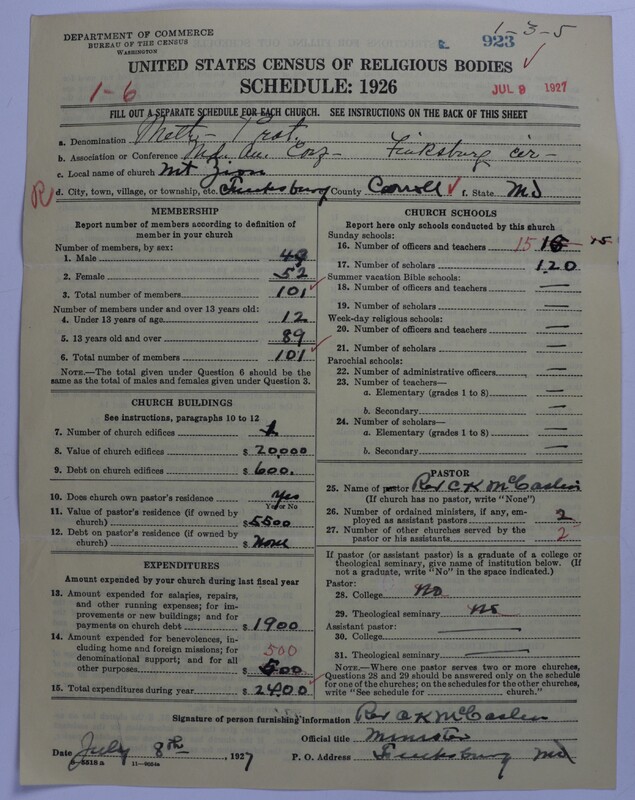 DEPARTMENT OF COMMERCE
BUREAU OF THE CENSUS
WASHINGTON
1-3-5
923
UNITED STATES CENSUS OF RELIGIOUS BODIES
SCHEDULE: 1926
1-6
JUL 9 1927
FILL OUT A SEPARATE SCHEDULE FOR EACH CHURCH. SEE INSTRUCTIONS ON THE BACK OF THIS SHEET
a. Denomination Meth- Prot.
b. Association or Conference Md. An. Conf- Finksburg cir-
c. Local name of church Mt Zion
R d. City, town, village, or township, etc. Finksburg County Carroll f. State Md
MEMBERSHIP
Report number of members according to definition of
member in your church
Number of members, by sex:
1. Male 49
2. Female 52
3. Total number of members 101
Number of members under and over 13 years old:
4. Under 13 years of age 12
5. 13 years old and over 89
6. Total number of members 101
NOTE.—The total given under Question 6 should be the
same as the total of males and females given under Question 3.
CHURCH BUILDINGS
See instructions, paragraphs 10 to 12
7. Number of church edifices 1
8. Value of church edifices $ 20,000
9. Debt on church edifices $ 600.
10. Does church own pastor's residence Yes
Yes or No
11. Value of pastor's residence (if owned by
church) $ 5500
12. Debt on pastor's residence (if owned by
church) $ None
EXPENDITURES
Amount expended by your church during last fiscal year
13. Amount expended for salaries, repairs,
and other running expenses; for im-
provements or new buildings; and for
payments on church debt $ 1900
14. Amount expended for benevolences, in-
cluding home and foreign missions; for 500
denominational support; and for all
other purposes $ 500
15. Total expenditures during year $ 2400
CHURCH SCHOOLS
Report here only schools conducted by this church
Sunday schools:
16. Number of officers and teachers 15 15
17. Number of scholars 120
Summer vacation Bible schools:
18. Number of officers and teachers —
19. Number of scholars —
Week-day religious schools:
20. Number of officers and teachers —
21. Number of scholars —
Parochial schools:
22. Number of administrative officers —
23. Number of teachers—
a. Elementary (grades 1 to 8) —
b. Secondary —
24. Number of scholars—
a. Elementary (grades 1 to 8) —
b. Secondary —
PASTOR
25. Name of pastor Rev C K McCaslin
(If church has no pastor, write "None")
26. Number of ordained ministers, if any, em-
ployed as assistant pastors 2
27. Number of other churches served by the
pastor or his assistants 2
If pastor (or assistant pastor) is a graduate of a college or
theological seminary, give name of institution below. (If
not a graduate, write "No" in the space indicated.)
Pastor:
28. College No
29. Theological seminary No
Assistant pastor:
30. College —
31. Theological seminary —
NOTE.—Where one pastor serves two or more churches,
Questions 28 and 29 should be answered only on the schedule
for one of the churches; on the schedules for the other churches,
write "See schedule for church."
Signature of person furnishing information Rev C K McCaslin
Official title Minister
Date July 8th, 1927 P. O. Address Finksburg Md
8-5518 a